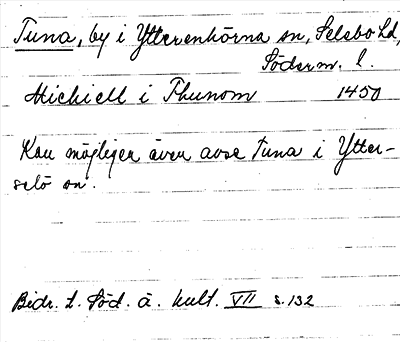 Tuna, by i Ytterenhörna sn, Selebo hd,
Söderm. l.
Michiell i Thunom 1450
Kan möjligen även avse Tuna i Ytter-
selö sn.
Bidr. t. Söd. ä. kult. VII s. 132